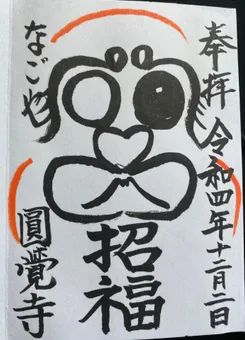 奉拝 令和四年十二月二日
招福
なごや
圓覺寺